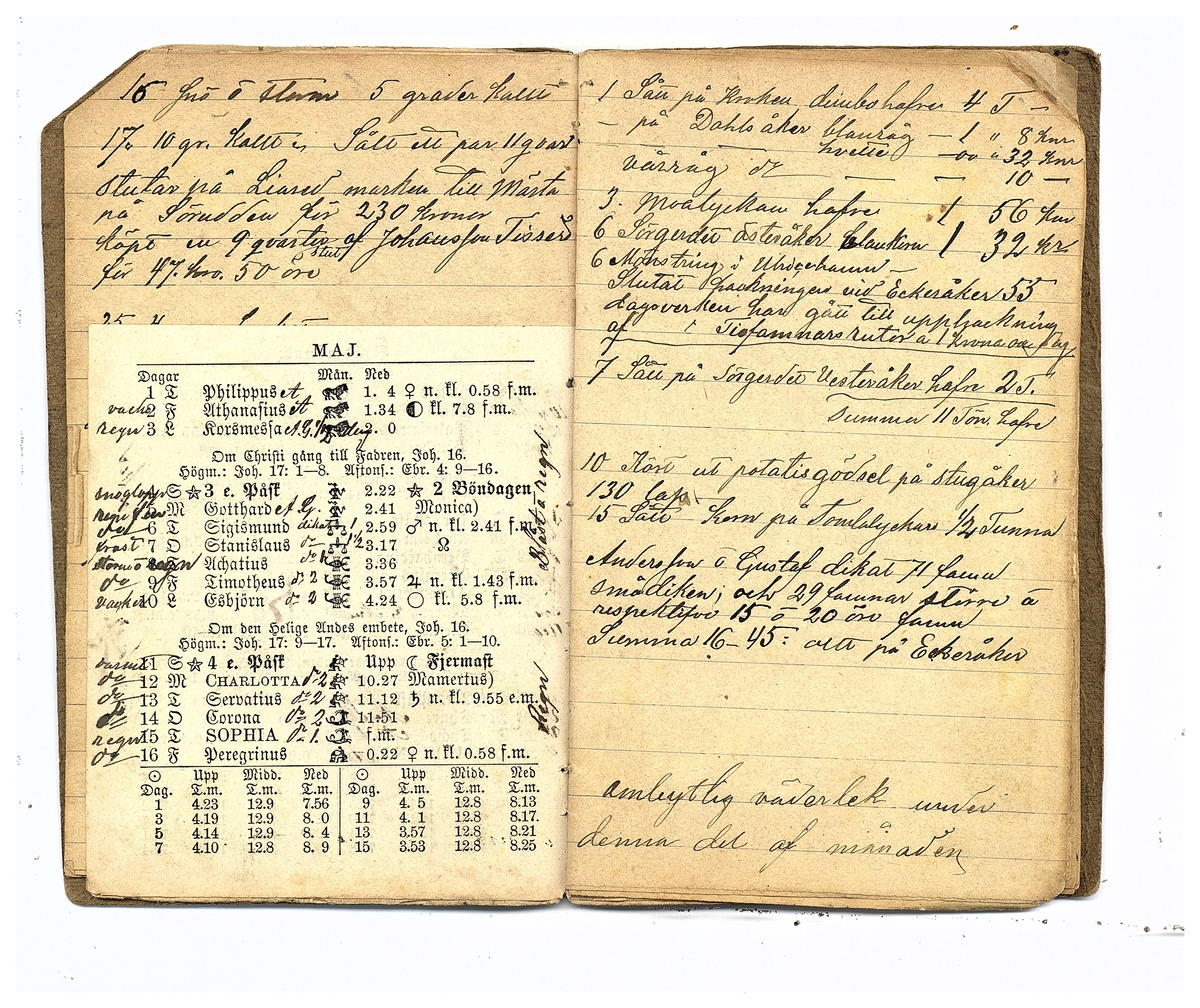 16 snö o storm 5 grader kallt
17. 10 gr. kallt. Sålt ett par 11 qvar
stutar på Liared marken till Mårta
på Sörudden för 230 kronor
köpt en 9 qvarter stut af Johansson Tisser
för 47. kro. 50 öre
25
MAJ.
Dagar Mån. Ned
1 T Philippus 1. 4 ♀ n. kl. 0.58 f.m.
vacke 2 F Athanasius 1.34 ◐ kl. 7.8 f.m.
regn 3 L Korsmessa 2. 0
Om Christi gång till Fadren, Joh. 16.
Högm.: Joh. 17: 1—8. Aftons.: Ebr. 4: 9—16.
S ☆ 3 e. Påsk 2.22 ☆ 2 Böndagen
M Gotthard 2.41 Monica)
6 T Sigismund dikat 1 2.59 ♂ n. kl. 2.41 f.m.
frost 7 O Stanislaus do 1½ 3.17 ☊
Achatius do 3.36
do 9 F Timotheus do 2 3.57 ♃ n. kl. 1.43 f.m.
vacker 10 L Esbjörn do 2 4.24 ○ kl. 5.8 f.m.
Om den Helige Andes embete, Joh. 16.
Högm.: Joh. 17: 9—17. Aftons.: Ebr. 5: 1—10.
varmt 11 S ☆ 4 e. Påsk Upp ☾ Fjermast
do 12 M CHARLOTTA do 2 10.27 Mamertus)
do 13 T Servatius do 2 11.12 ♄ n. kl. 9.55 e.m.
do 14 O Corona do 2 11.51
regn 15 T SOPHIA do 1. f.m.
do 16 F Peregrinus 0.22 ♀ n. kl. 0.58 f.m.
☉ Upp Midd. Ned ☉ Upp Midd. Ned
Dag. T.m. T.m. T.m. Dag. T.m. T.m. T.m.
1 4.23 12.9 7.56 9 4. 5 12.8 8.13
3 4.19 12.9 8. 0 11 4. 1 12.8 8.17
5 4.14 12.9 8. 4 13 3.57 12.8 8.21
7 4.10 12.8 8. 9 15 3.53 12.8 8.25
Blåst o regn
Regn
1 Sått på Kroken, dimbohafre 4 T —
— på Dahlsåker blanråg — 1 " 8 knr
hvette — oo " 32 knr
vårråg do — — 10 —
3. Moalyckan hafre 1 56 knr
6 Sörgerdet österåker blankorn 1 32 kr.
6 Mönstring i Ulricehamn —
Slutat hackningen vid Eckeråker 55
dagsverken har gått till upphackning
af Tiofamnarsrutor a 1 krona om dag
7 Sått på Sörgerdet Vesteråker hafre 2 T.
Summa 11 Tön. hafre
10 Kört ut potatisgödsel på stugåker
130 lass
15 Sått korn på Tomtalyckan ½ Tunna
Andersson o Gustaf dikat 71 famn
smådiken; och 29 famnar större a
respektifve 15 o 20 öre famn
Summa 16-45: allt på Eckeråker
ombytlig väderlek under
denna del af månaden